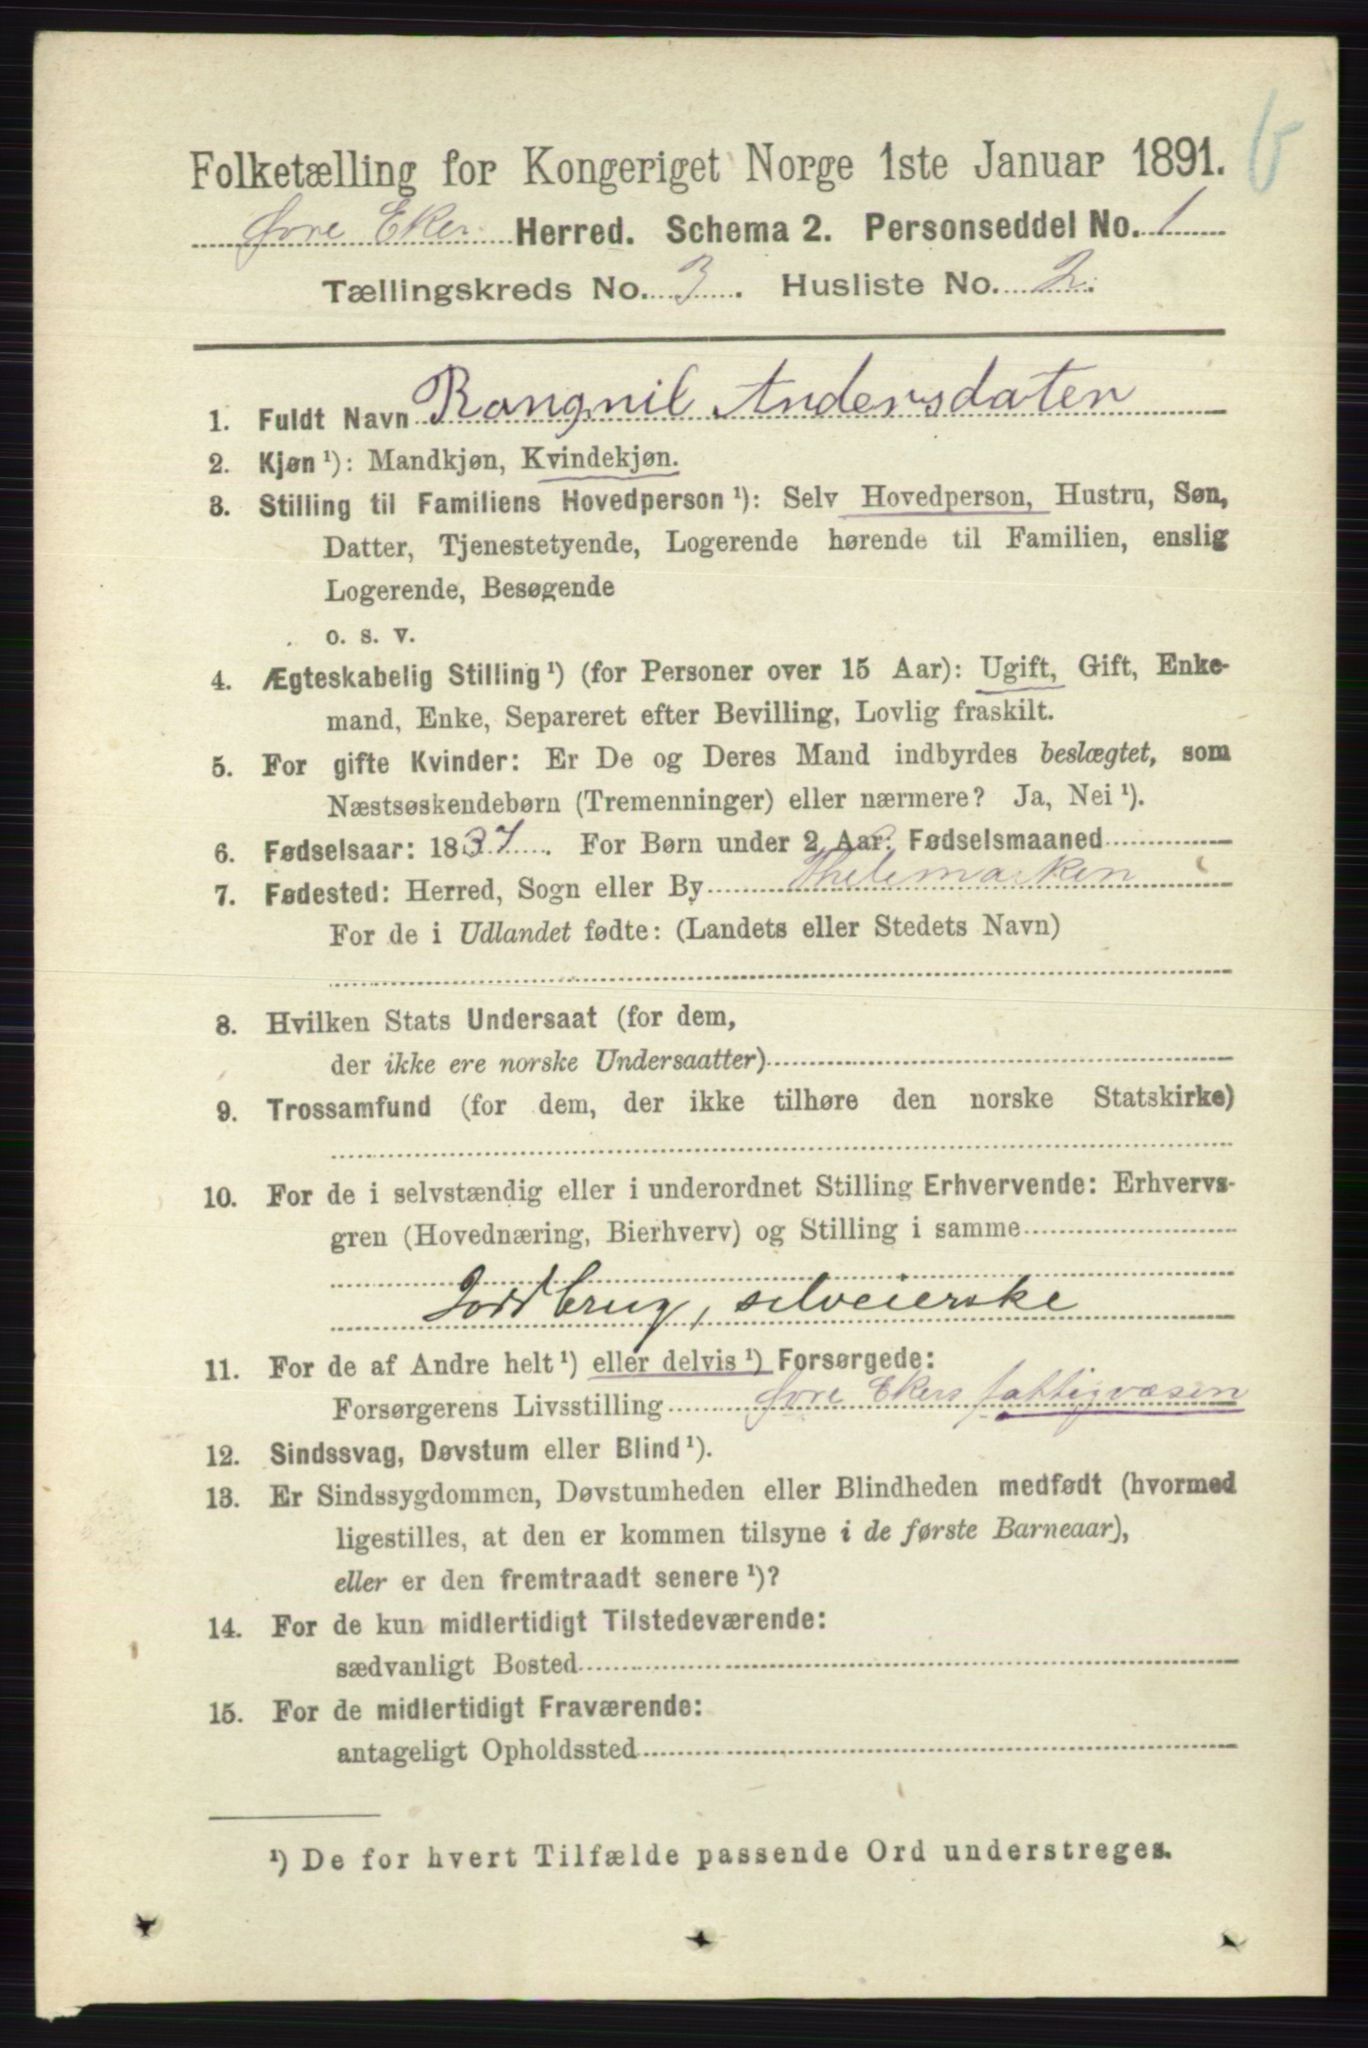 Folketælling for Kongeriget Norge 1ste Januar 1891.
Øvre Eker Herred. Schema 2. Personseddel No. 1
Tællingskreds No. 3. Husliste No. 2.
1. Fuldt Navn Rangnil Andersdater
2. Kjøn ¹): Mandkjøn, Kvindekjøn.
3. Stilling til Familiens Hovedperson ¹): Selv Hovedperson, Hustru, Søn,
Datter, Tjenestetyende, Logerende hørende til Familien, enslig
Logerende, Besøgende
o. s. v.
4. Ægteskabelig Stilling ¹) (for Personer over 15 Aar): Ugift, Gift, Enke-
mand, Enke, Separeret efter Bevilling, Lovlig fraskilt.
5. For gifte Kvinder: Er De og Deres Mand indbyrdes beslægtet, som
Næstsøskendebørn (Tremenninger) eller nærmere? Ja, Nei ¹).
6. Fødselsaar: 1837. For Børn under 2 Aar: Fødselsmaaned
7. Fødested: Herred, Sogn eller By Thelemarken
For de i Udlandet fødte: (Landets eller Stedets Navn)
8. Hvilken Stats Undersaat (for dem,
der ikke ere norske Undersaatter)
9. Trossamfund (for dem, der ikke tilhøre den norske Statskirke)
10. For de i selvstændig eller i underordnet Stilling Erhvervende: Erhvervs-
gren (Hovednæring, Bierhverv) og Stilling i samme
Jordbrug, selveierske
11. For de af Andre helt ¹) eller delvis ¹) Forsørgede:
Forsørgerens Livsstilling Øvre Ekers fattigvæsen
12. Sindssvag, Døvstum eller Blind ¹).
13. Er Sindssygdommen, Døvstumheden eller Blindheden medfødt (hvormed
ligestilles, at den er kommen tilsyne i de første Barneaar),
eller er den fremtraadt senere ¹)?
14. For de kun midlertidigt Tilstedeværende:
sædvanligt Bosted
15. For de midlertidigt Fraværende:
antageligt Opholdssted
¹) De for hvert Tilfælde passende Ord understreges.